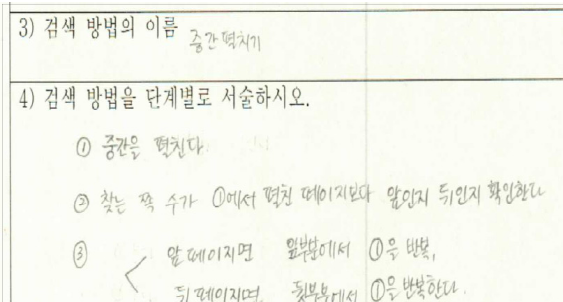 3) 검색 방법의 이름 중간펼치기
4) 검색 방법을 단계별로 서술하시오.
① 중간을 펼친다.
② 찾는 쪽 수가 ①에서 펼친 페이지보다 앞인지 뒤인지 확인한다
③ 앞 페이지면 앞부분에서 ①을 반복,
뒤 페이지면 뒷부분에서 ①을 반복한다.